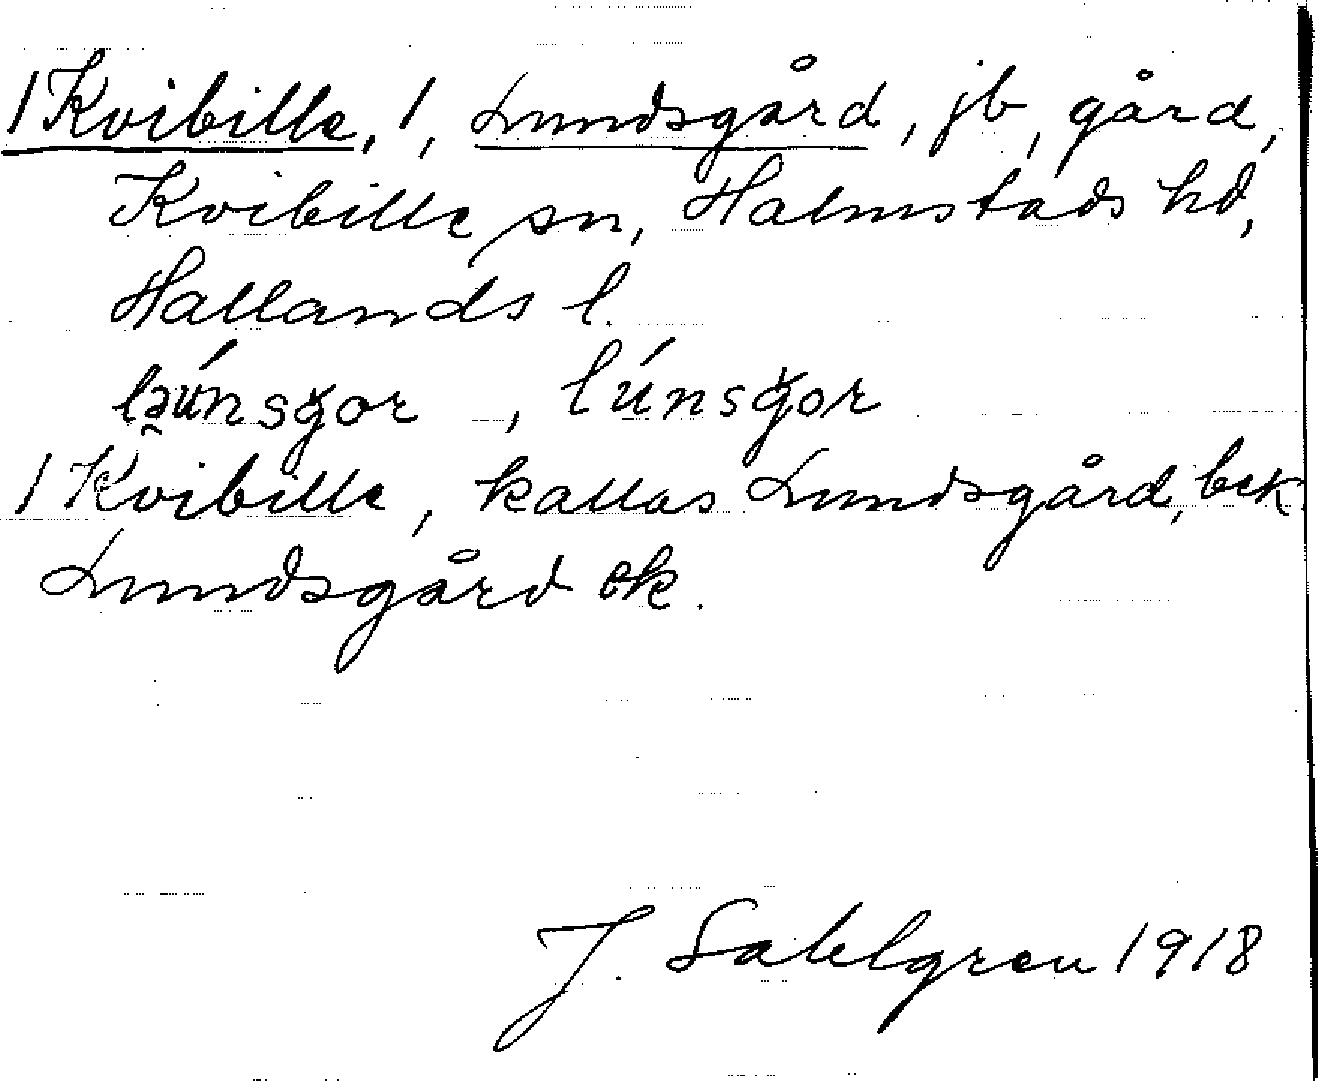 1 Kvibille, 1, Lundsgård, jb, gård,
Kvibille sn, Halmstads hd,
Hallands l.
lúnsgor
1 Kvibille, kallas Lundsgård, bek
Lundsgård ek.
J. Sahlgren 1918